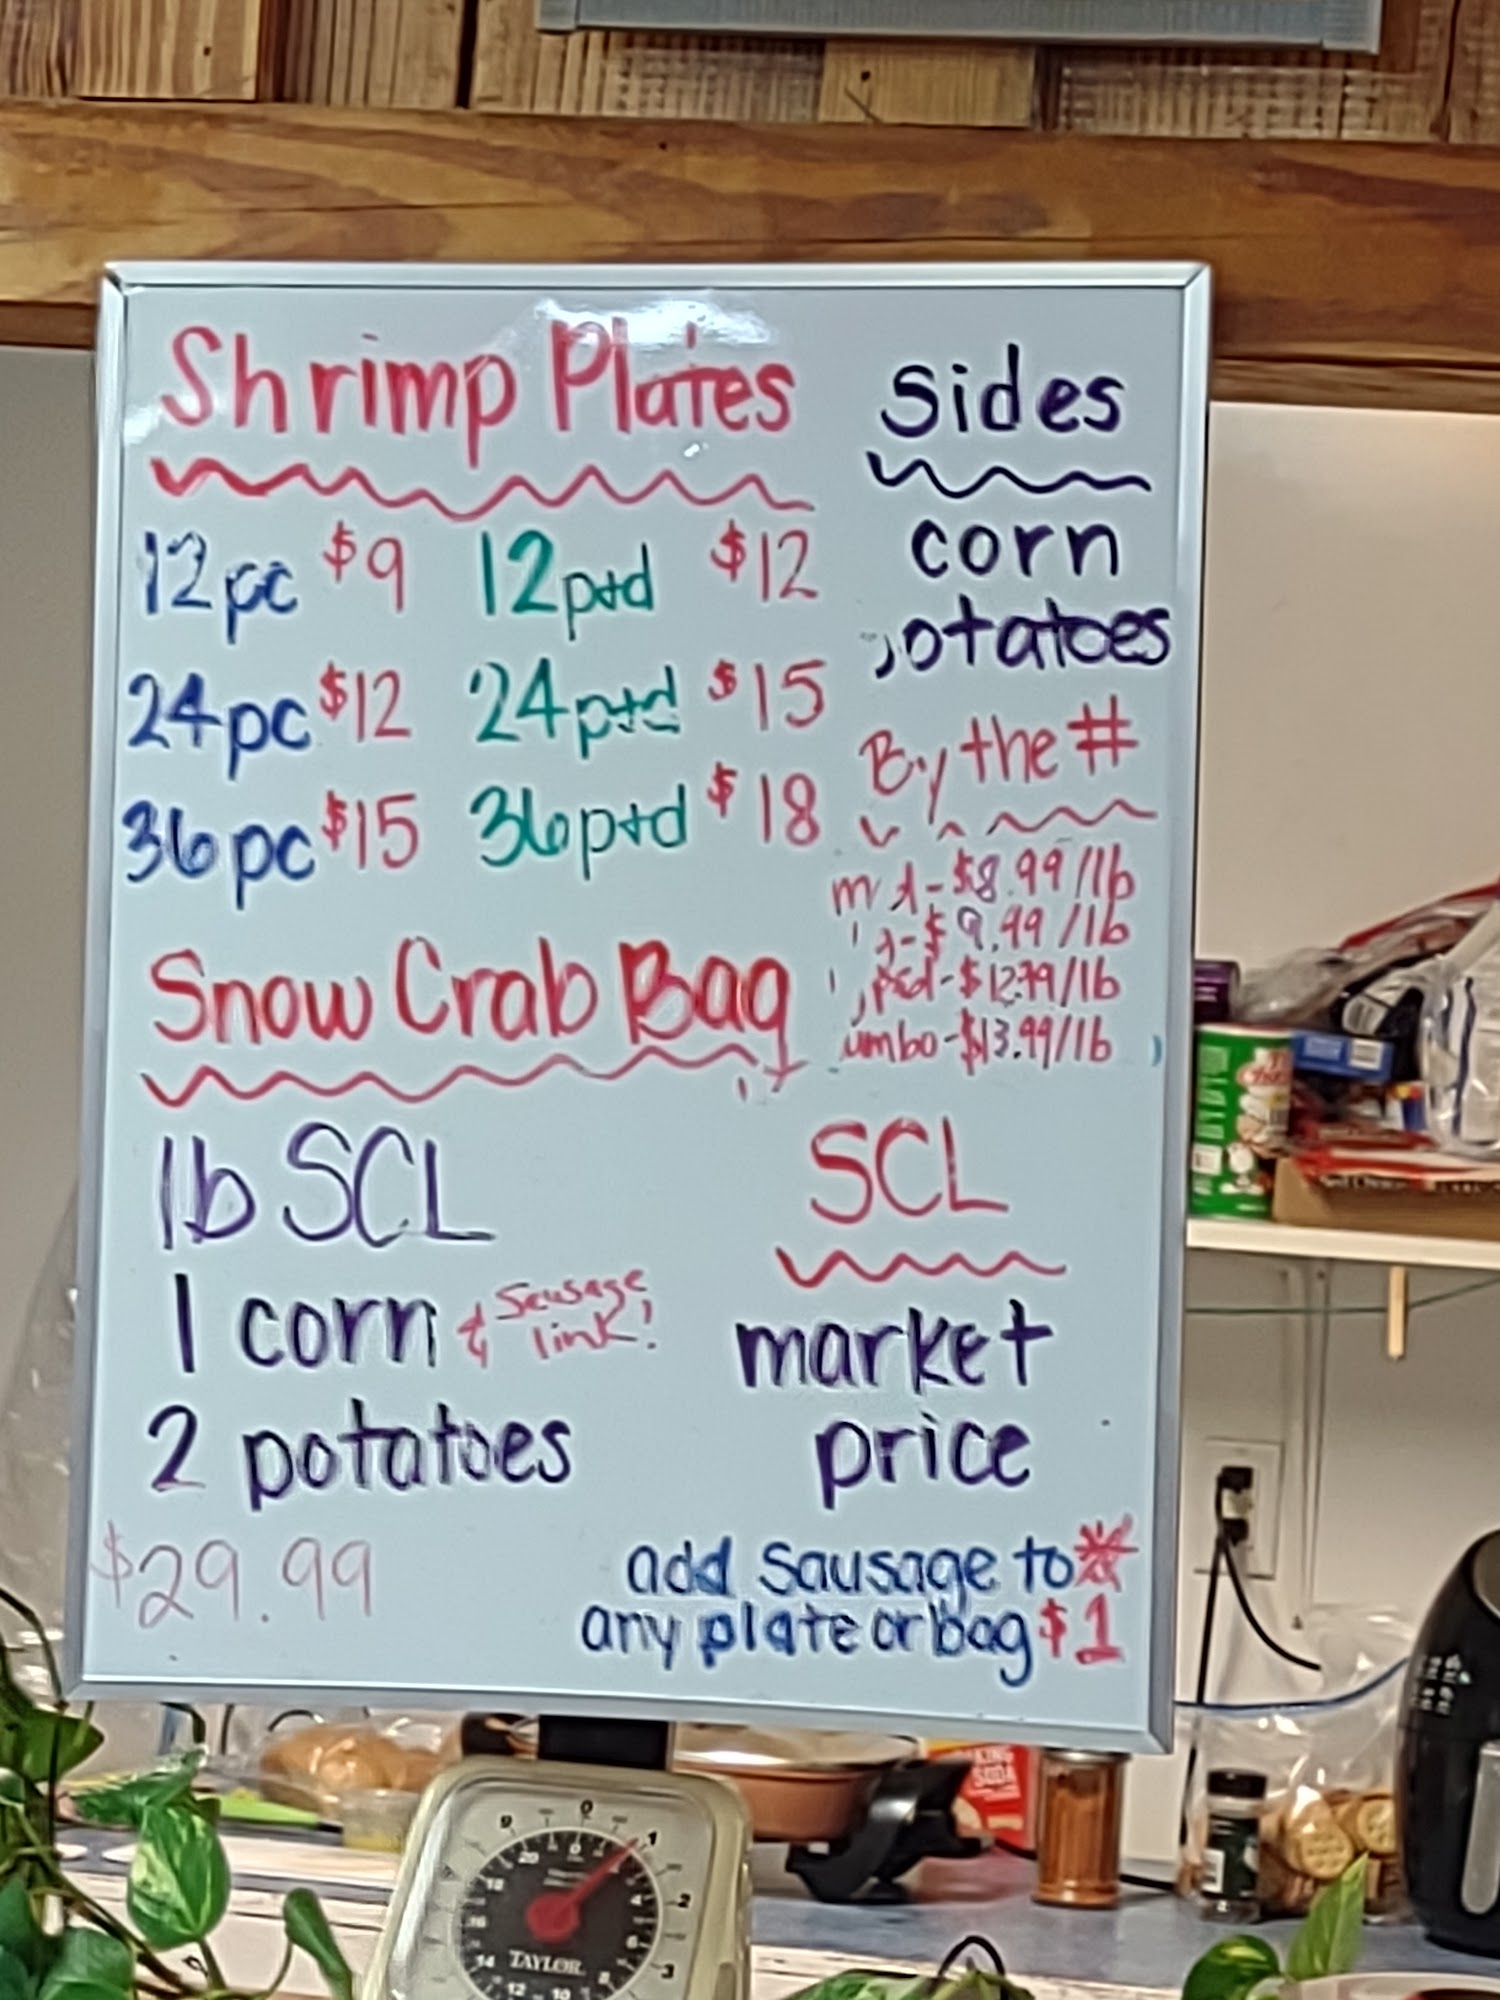 Shrimp Plates
12pc $9 12ptd $12
24pc $12 24ptd $15
36pc $15 36ptd $18
Sides
corn
otatoes
By the #
$8.99/lb
$9.99/lb
$12.99/lb
umbo-$13.99/lb
Snow Crab Bag
1lb SCL
1 corn & Sausage
link!
2 potatoes
$29.99
SCL
market
price
add sausage to
any plate or bag $1
SODA
TAYLOR